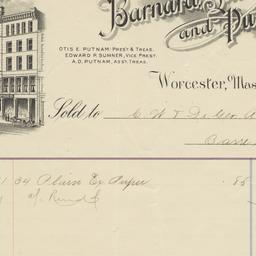 Barnard,
and Pu
OTIS E. PUTNAM: PREST & TREAS.
EDWARD P. SUMNER, VICE PREST.
A.O. PUTNAM, ASST. TREAS.
Worcester, Mas
Sold to C W
Barre
1 34 Plain Ex Paper 85